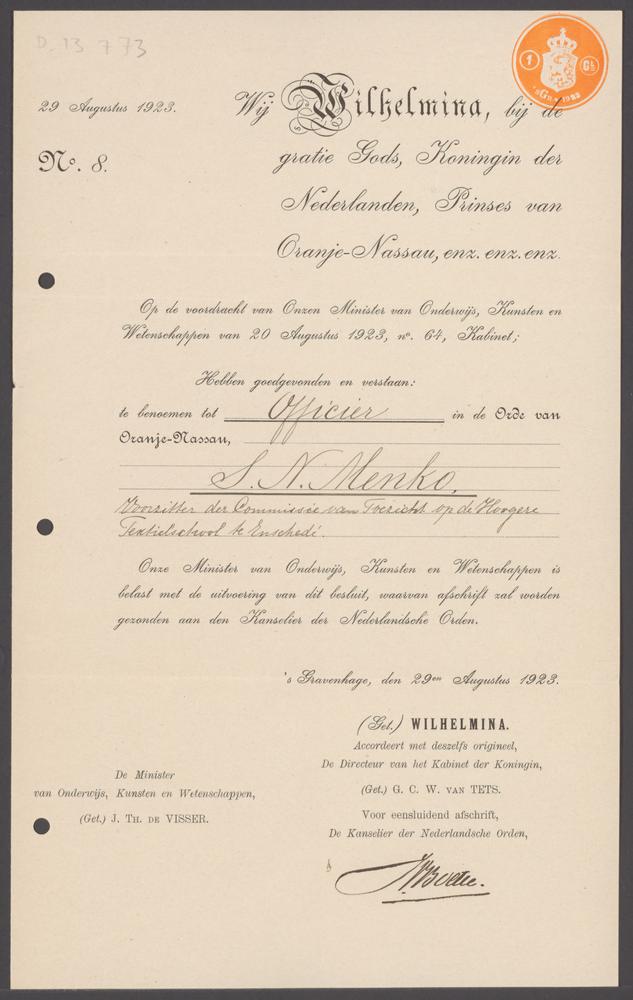 D. 13 773
29 Augustus 1923.
No. 8.
1 Gl.
Wij Wilhelmina, bij de
gratie Gods, Koningin der
Nederlanden, Prinses van
Oranje-Nassau, enz. enz. enz.
Op de voordracht van Onzen Minister van Onderwijs, Kunsten en
Wetenschappen van 20 Augustus 1923, no. 64, Kabinet;
Hebben goedgevonden en verstaan:
te benoemen tot Officier in de Orde van
Oranje-Nassau,
S. N. Menko,
Voorzitter der Commissie van Toezicht op de Hoogere
Textielschool te Enschedé.
Onze Minister van Onderwijs, Kunsten en Wetenschappen is
belast met de uitvoering van dit besluit, waarvan afschrift zal worden
gezonden aan den Kanselier der Nederlandsche Orden.
's Gravenhage, den 29en Augustus 1923.
(Get.) WILHELMINA.
Accordeert met deszelfs origineel,
De Directeur van het Kabinet der Koningin,
(Get.) G. C. W. VAN TETS.
Voor eensluidend afschrift,
De Kanselier der Nederlandsche Orden,
De Minister
van Onderwijs, Kunsten en Wetenschappen,
(Get.) J. TH. DE VISSER.